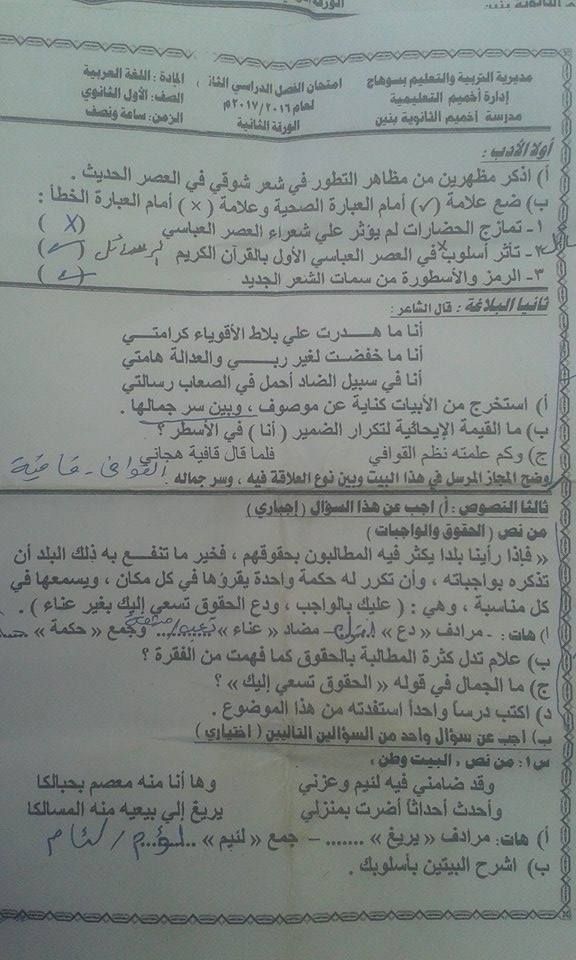 مديرية التربية والتعليم بسوهاج
إدارة أخميم التعليمية
مدرسة أخميم الثانوية بنين
امتحان الفصل الدراسي الثان
لعام ٢٠١٦/٢٠١٧م
الورقة الثانية
المادة : اللغة العربية
الصف: الأول الثانوي
الزمن: ساعة ونصف
أولا الأدب :
أ) اذكر مظهرين من مظاهر التطور في شعر شوقي في العصر الحديث .
ب) ضع علامة (✓) أمام العبارة الصحية وعلامة (×) أمام العبارة الخطأ :
١- تمازج الحضارات لم يؤثر علي شعراء العصر العباسي ( X )
٢- تأثر أسلوب× في العصر العباسي الأول بالقرآن الكريم الرسائل ( ✓ )
٣- الرمز والأسطورة من سمات الشعر الجديد ( ✓ )
ثانيا البلاغة : قال الشاعر :
أنا ما هـدرت علي بلاط الأقوياء كرامتـي
أنا ما خفضت لغير ربـي والعدالة هامتي
أنا في سبيل الضاد أحمل في الصعاب رسالتي
أ) استخرج من الأبيات كناية عن موصوف ، وبين سر جمالها .
ب) ما القيمة الإيحائية لتكرار الضمير ( أنا ) في الأسطر ؟
ج) وكم علمته نظم القوافي فلما قال قافية هجاني
وضح المجاز المرسل في هذا البيت وبين نوع العلاقة فيه ، وسر جماله . القوافى - قافية
ثالثا النصوص : أ) اجب عن هذا السؤال ( إجباري )
من نص ( الحقوق والواجبات )
« فإذا رأينا بلدا يكثر فيه المطالبون بحقوقهم ، فخير ما تنفـع به ذلك البلد أن
تذكره بواجباته ، وأن تكرر له حكمة واحدة يقرؤها في كل مكان ، ويسمعها في
كل مناسبة ، وهي : ( عليك بالواجب ، ودع الحقوق تسعي إليك بغير عناء ) .
أ) هات: - مرادف « دع » اترك - مضاد « عناء » وجمع « حكمة »
ب) علام تدل كثرة المطالبة بالحقوق كما فهمت من الفقرة ؟
ج) ما الجمال في قوله « الحقوق تسعي إليك » ؟
د) اكتب درساً واحداً استفدته من هذا الموضوع .
ب) اجب عن سؤال واحد من السؤالين التاليين ( اختياري )
س١: من نص ، البيت وطن ،
وقد ضامني فيه لئيم وعزني وها أنا منه معصم بحبالكا
وأحدث أحداثاً أضرت بمنزلي يريغ إلي بيعيه منه المسالكا
أ) هات: مرادف « يريغ » ....... – جمع « لئيم » لؤم / لئام
ب) اشرح البيتين بأسلوبك .